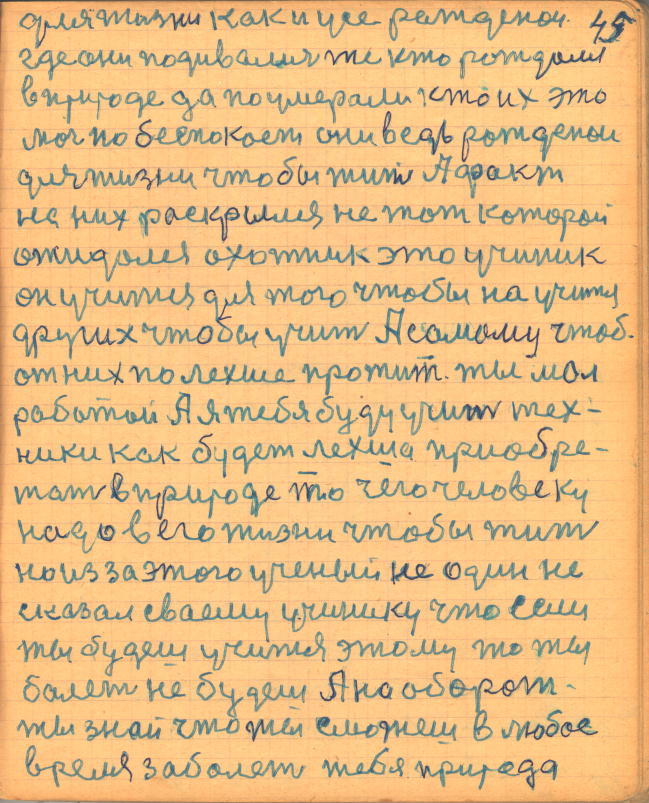 45
для жизни как и усе рожденои
где они подивалия те кто рождолия
в природе да поумерали кто их это
мог побеспокоет они ведь рожденои
для жизни чтобы жит А факт
на них раскрылся не тот которой
ожидолся охотник это ученик
он учится для того чтобы научится
других чтобы учит А самому чтоб.
от них полехше прожит. ты мол
работай А я тебя буду учит тех-
ники как будет лехша приобре-
тат в природе то чего человеку
надо в его жизни чтобы жит
но из за этого ученый не один не
сказал сваему ученику что если
ты будеш учится этому то ты
болет не будеш А наоборот.
ты знай что ты сможеш в любое
время заболет тебя природа